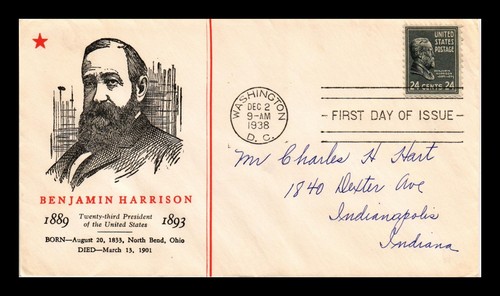 BENJAMIN HARRISON
1889 Twenty-third President of the United States 1893
BORN—August 20, 1833, North Bend, Ohio
DIED—March 13, 1901
WASHINGTON
DEC 2
9-AM
1938
D. C.
FIRST DAY OF ISSUE
UNITED
STATES
POSTAGE
24 CENTS 24
Mr Charles H Hart
1840 Dexter Ave
Indianapolis
Indiana